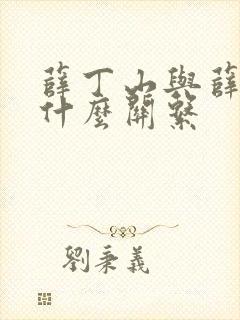 薛丁山與薛
什麼關繫
劉秉義